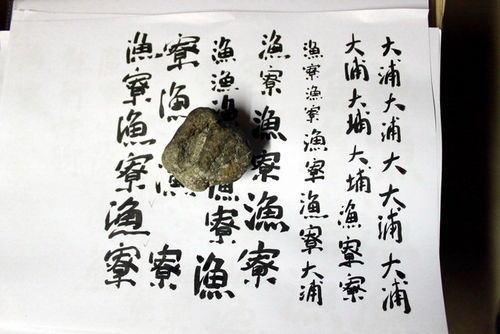 大浦大浦大大浦大浦
大浦大埔大埔漁寮寮
漁寮漁寮漁寮漁寮大浦
漁寮漁寮漁寮
漁漁寮漁
寮漁寮
漁寮漁寮漁寮